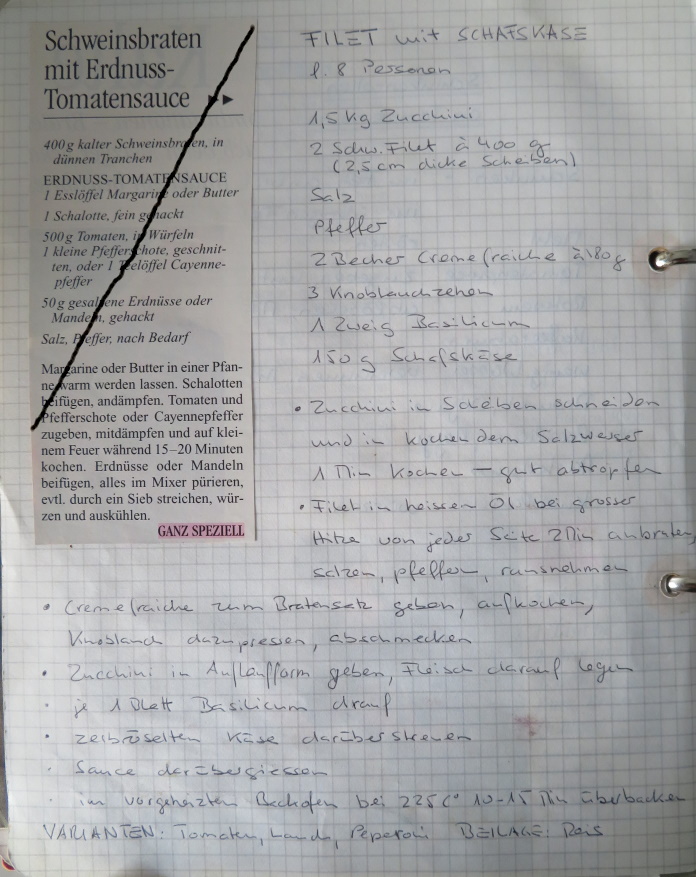 Schweinsbraten
mit Erdnuss-
Tomatensauce ▸▸
400 g kalter Schweinsbraten, in
dünnen Tranchen
ERDNUSS-TOMATENSAUCE
1 Esslöffel Margarine oder Butter
1 Schalotte, fein gehackt
500 g Tomaten, in Würfeln
1 kleine Pfefferschote, geschnit-
ten, oder 1 Teelöffel Cayenne-
pfeffer
50 g gesalzene Erdnüsse oder
Mandeln, gehackt
Salz, Pfeffer, nach Bedarf
Margarine oder Butter in einer Pfan-
ne warm werden lassen. Schalotten
beifügen, andämpfen. Tomaten und
Pfefferschote oder Cayennepfeffer
zugeben, mitdämpfen und auf klei-
nem Feuer während 15–20 Minuten
kochen. Erdnüsse oder Mandeln
beifügen, alles im Mixer pürieren,
evtl. durch ein Sieb streichen, wür-
zen und auskühlen.
GANZ SPEZIELL
FILET mit SCHAFSKÄSE
f. 8 Personen
1,5 kg Zucchini
2 Schw. Filet à 400 g
(2,5 cm dicke Scheiben)
Salz
Pfeffer
2 Becher Creme fraiche à 180 g
3 Knoblauchzehen
1 Zweig Basilicum
150 g Schafskäse
• Zucchini in Scheiben schneiden
und in kochendem Salzwasser
1 Min kochen – gut abtropfen
• Filet in heissen Öl bei grosser
Hitze von jeder Seite 2 Min anbraten,
salzen, pfeffern, rausnehmen
• Creme fraiche zum Bratensatz geben, aufkochen,
Knoblauch dazupressen, abschmecken
• Zucchini in Auflaufform geben, Fleisch darauf legen
• je 1 Blatt Basilicum drauf
• zerbröselten Käse darüberstreuen
• Sauce darübergiessen
• im vorgeheizten Backofen bei 225 C° 10-15 Min überbacken
VARIANTEN: Tomaten, Lauch, Peperoni BEILAGE: Reis